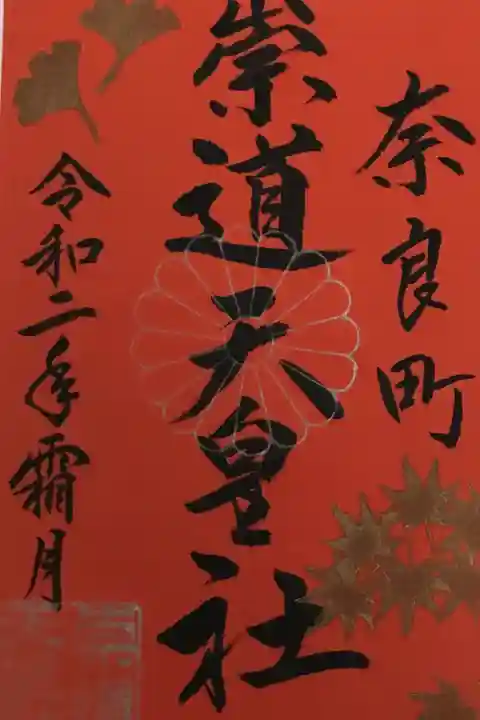 奈良町
崇道天皇社
令和二年霜月